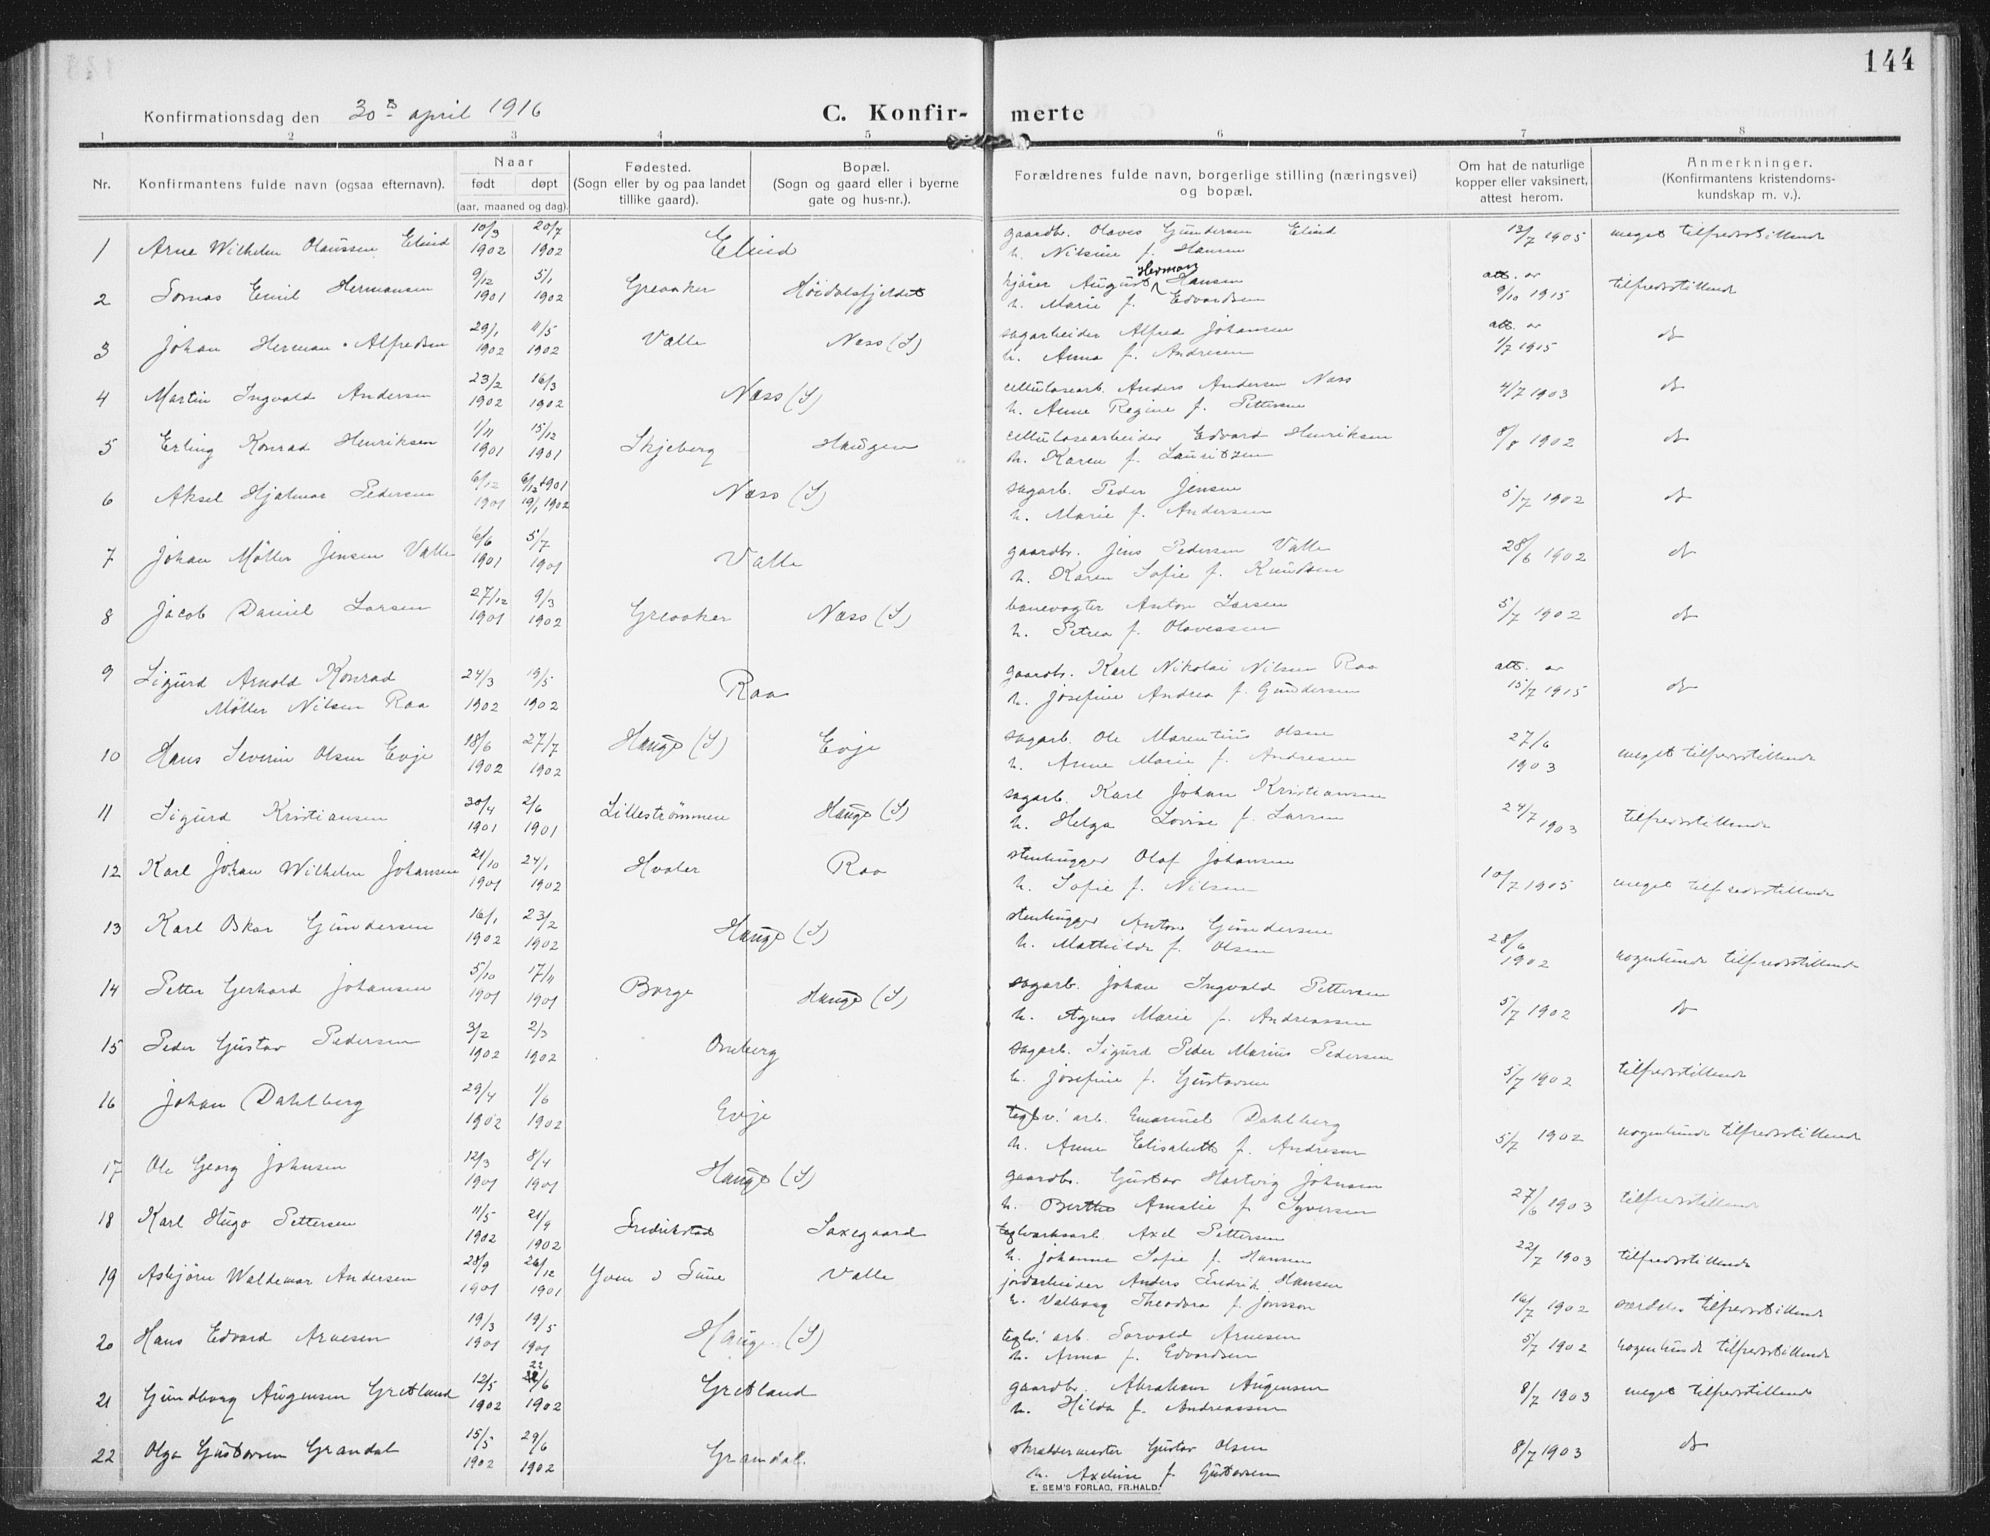 144
Konfirmationsdag den 30te april 1916
C. Konfirmerte
1 2 3 4 5 6 7 8
Nr. Konfirmantens fulde navn (ogsaa efternavn). Naar født døpt (aar, maaned og dag). Fødested. (Sogn eller by og paa landet tillike gaard). Bopæl. (Sogn og gaard eller i byerne gate og hus-nr.). Forældrenes fulde navn, borgerlige stilling (næringsvei) og bopæl. Om hat de naturlige kopper eller vaksinert, attest herom. Anmerkninger. (Konfirmantens kristendomskundskap m. v.).
1 Arne Wilhelm Olaussen Elind 10/3 1902 20/7 1902 Elind gaardbr. Olaves Gundersen Elind 13/7 1905 meget tilfredsstillende
h. Nilsine f. Hansen
2 Tomas Emil Hermansen 9/12 1901 5/1 1902 Greaaker Høidalsfjeldet kjører August Herman Hansen att. av 9/10 1915 tilfredsstillende
h. Marie f. Edvardsen
3 Johan Herman Alfredsen 29/1 1902 11/5 1902 Valle Næss (S) sagarbeider Alfred Johansen att. av 1/7 1915 do
h. Anna f. Andresen
4 Martin Ingvald Andersen 23/2 1902 16/3 1902 Næss (S) cellulosearb. Anders Andersen Næss 4/7 1903 do
h. Anne Regine f. Pettersen
5 Erling Konrad Henriksen 1/11 1901 15/12 1901 Skjeberg Haugen cellulosearbeider Edvard Henriksen 8/8 1902 do
h. Karen f. Lauritzen
6 Aksel Hjalmar Pedersen 6/12 1901 6/12 1901 19/1 1902 Næss (S) sagarb. Peder Jensen 5/7 1902 do
h. Marie f. Andersen
7 Johan Møller Jensen Valle 6/6 1901 5/7 1901 Valle gaardbr. Jens Pedersen Valle 28/6 1902 do
h. Karen Sofie f. Knudsen
8 Jacob Daniel Larsen 27/12 1901 9/3 1902 Greaaker Næss (S) banevogter Anton Larsen 5/7 1902 do
h. Petrea f. Olavessen
9 Sigurd Arnold Konrad 24/3 1902 19/5 1902 Raa gaardbr. Karl Nikolai Nilsen Raa att. av 15/7 1915 do
Møller Nilsen Raa h. Josefine Andrea f. Gundersen
10 Hans Severin Olsen Evje 18/6 1902 27/7 1902 Hauge (S) Evje sagarb. Ole Marentius Olsen 27/6 1903 meget tilfredsstillende
h. Anne Marie f. Andresen
11 Sigurd Kristiansen 30/4 1901 2/6 1901 Lillestrømmen Hauge (S) sagarb. Karl Johan Kristiansen 24/7 1903 tilfredsstillende
h. Helga Lovise f. Larsen
12 Karl Johan Wilhelm Johansen 21/10 1901 24/1 1902 Hvaler Raa stenhugger Olaf Johansen 10/7 1905 meget tilfredsstillende
h. Sofie f. Nilsen
13 Karl Oskar Gundersen 16/1 1902 23/2 1902 Hauge (S) stenhugger Anton Gundersen 28/6 1902 nogenlunde tilfredsstillende
h. Mathilde f. Olsen
14 Petter Gerhard Johansen 5/10 1901 17/11 1901 Borge Hauge (S) sagarb. Johan Ingvald Pettersen 5/7 1902 do
h. Agnes Marie f. Andreassen
15 Peder Gustav Pedersen 3/2 1902 2/3 1902 Omberg sagarb. Sigurd Peder Marius Pedersen 5/7 1902 tilfredsstillende
h. Josefine f. Gustavsen
16 Johan Dahlberg 29/4 1902 1/6 1902 Evje teglv. arb. Emanuel Dahlberg 5/7 1902 nogenlunde tilfredsstillende
h. Anne Elisabeth f. Andresen
17 Ole Georg Johnsen 12/3 1901 8/4 1901 Hauge (S) gaardbr. Gustav Hartvig Johnsen 27/6 1903 tilfredsstillende
h. Berthe Amalie f. Syversen
18 Karl Hugo Pettersen 11/5 1902 21/9 1902 Fredrikstad Saxegaard teglverksarb. Axel Pettersen 22/7 1903 tilfredsstillende
h. Johanne Sofie f. Hansen
19 Asbjørn Waldemar Andersen 28/9 1901 26/12 1901 Yven i Tune Valle jordarbeider Anders Fredrik Hansen 16/7 1902 særdeles tilfredsstillende
h. Valborg Theodora f. Jonsson
20 Hans Edvard Arnesen 19/3 1901 19/5 1901 Hauge (S) teglv. arb. Torvald Arnesen 5/7 1902 nogenlunde tilfredsstillende
h. Anna f. Edvardsen
21 Gundborg Augensen Gretland 12/5 1902 22/6 1902 Gretland gaardbr. Abraham Augensen 8/7 1903 meget tilfredsstillende
h. Hilda f. Andreassen
22 Olga Gustavsen Grandal 15/5 1902 29/6 1902 Grandal skræddermester Gustav Olsen 8/7 1903 do
h. Axeline f. Gustavsen
E. SEM'S FORLAG, FR.HALD.